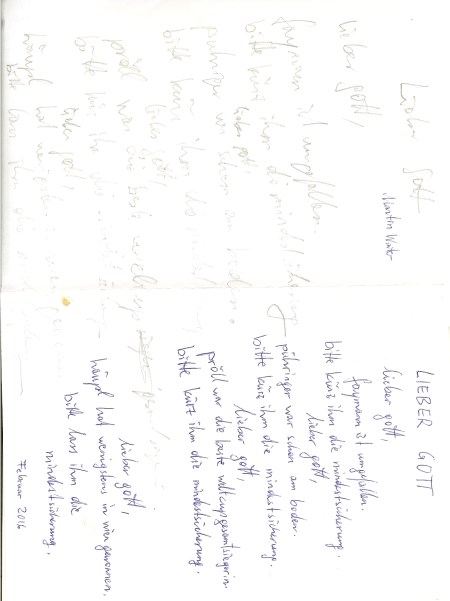 Lieber Gott
Martin Winter
lieber gott,
faymann ist umgefallen.
bitte kürz ihm die mindestsicherung
lieber gott,
pühringer war schon am boden.
bitte kürz ihm die
lieber gott,
pröll war die beste
bitte kürz ihr die
lieber gott,
häupl hat wenigstens in wien
bitte lass ihm die
LIEBER GOTT
lieber gott,
faymann ist umgefallen.
bitte kürz ihm die mindestsicherung.
lieber gott,
pühringer war schon am boden.
bitte kürz ihm die mindestsicherung.
lieber gott,
pröll war die beste weltcupgesamtsiegerin.
bitte kürz ihm die mindestsicherung.
lieber gott,
häupl hat wenigstens in wien gewonnen.
bitte lass ihm die
mindestsicherung.
Februar 2016